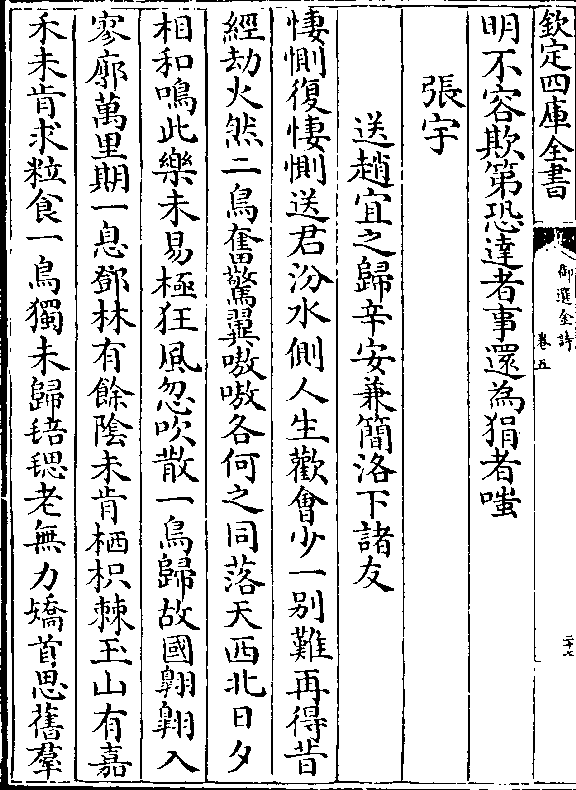 欽定四庫全書
御選金詩
卷五
二十七
明不容欺第恐達者事還為狷者嗤
張宇
送趙宜之歸辛安兼簡洛下諸友
悽惻復悽惻送君汾水側人生歡㑹少一别難再得昔
經劫火然二鳥奮驚翼嗷嗷各何之同落天西北日夕
相和鳴此樂未易極狂風忽吹散一鳥歸故國翺翺入
寥廓萬里期一息鄧林有餘陰未肯栖枳棘玉山有嘉
禾未肯求粒食一鳥獨未歸毰毸老無力矯首思舊羣